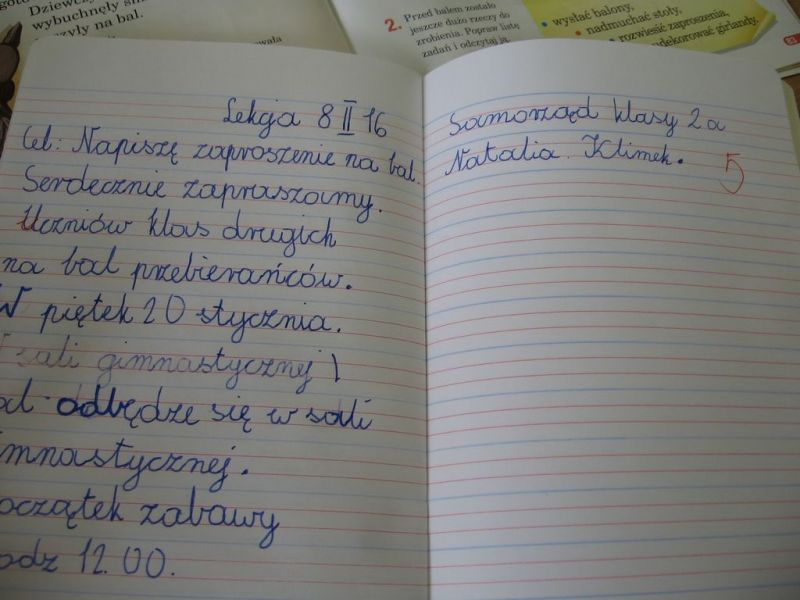 Dziewczy
wybuchnęły śm
zyły na bal.
2. Przed balem zostało
jeszcze dużo rzeczy do
zrobienia. Popraw listę
zadań i odczytaj ją.
• wysłać balony,
• nadmuchać stoły,
• rozwiesić zaproszenia,
udekorować girlandy.
Lekcja 8 II 16
Cel: Napiszę zaproszenie na bal.
Serdecznie zapraszamy.
Uczniów klas drugich
na bal przebierańców.
W piętek 20 stycznia.
sali gimnastycznej
al odbędze się w sali
imnastycznej.
oczątek zabawy
odz 12.00.
Samorząd klasy 2a
Natalia. Klimek.
5